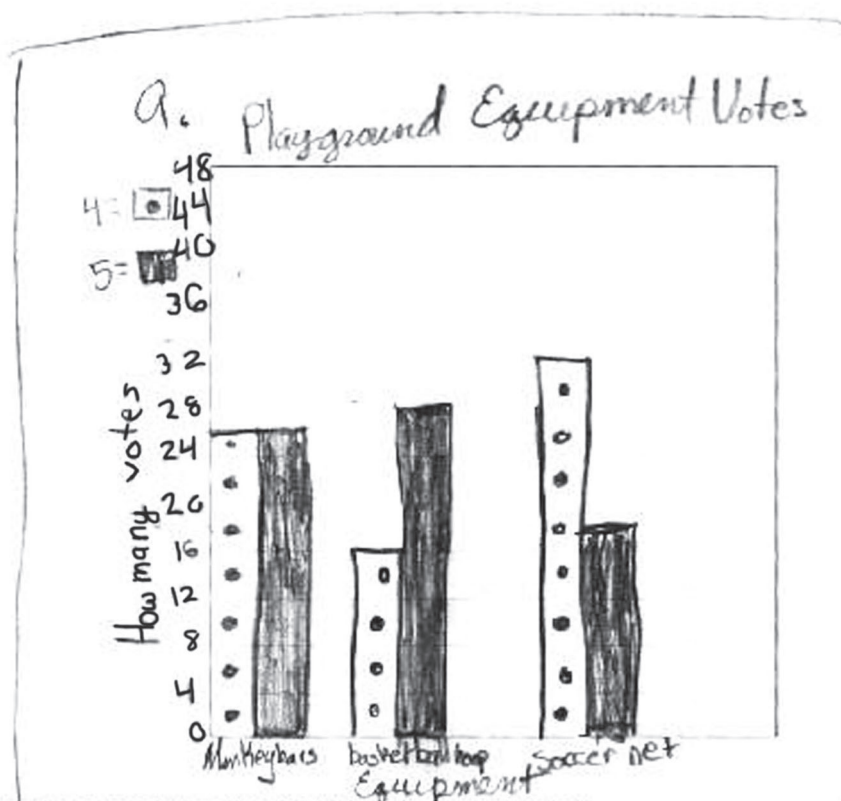 a.
Playground Equipment Votes
4=
5=
48
44
40
36
32
28
24
20
16
12
8
4
0
How many votes
Monkeybars basketball hoop Soccer net
Equipment